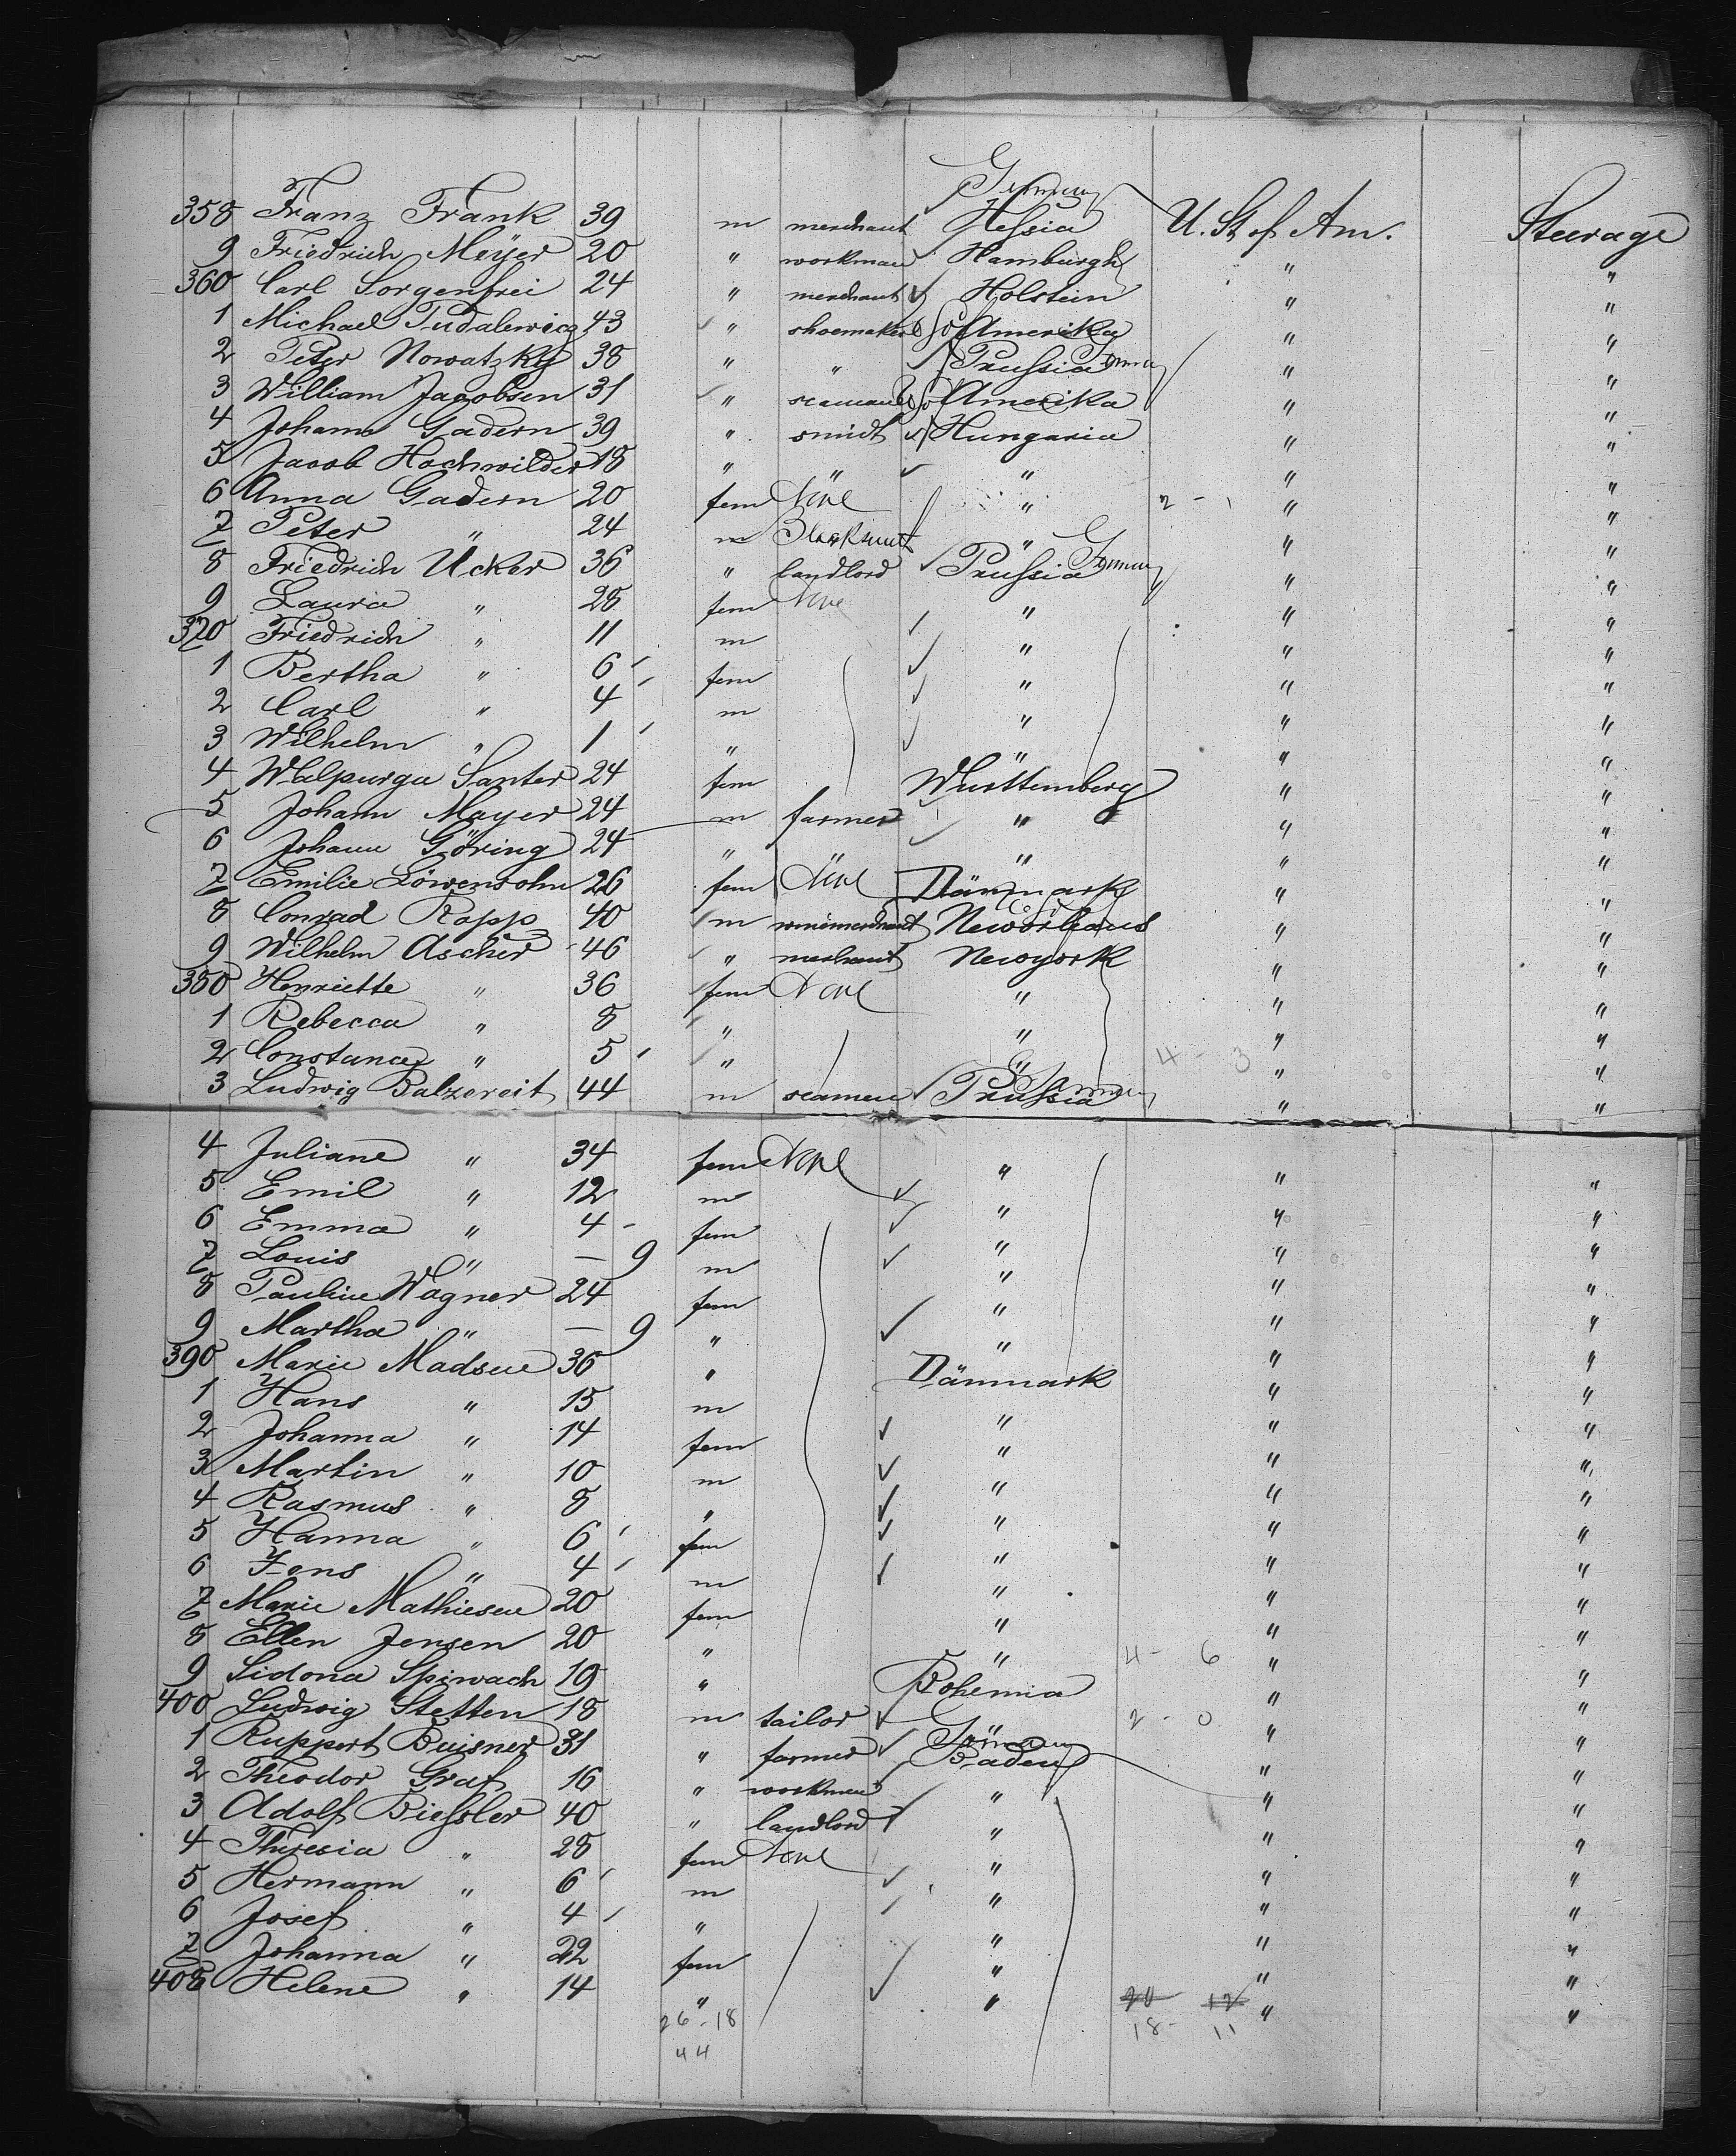 Germany
358 Franz Frank 39 m merchant Hessia U. St of Am. Steerage
9 Friedrich Meÿer 20 " workman Hamburgh " "
360 Carl Sorgenfrei 24 " merchant Holstein " "
1 Michael Tudalewicz 43 " shoemaker Amerika " "
2 Peter Nowatzky 38 " " Prussia Germany " "
3 William Jacobsen 31 " seaman Amerika " "
4 Johann Gadern 39 " smidt Hungaria " "
5 Jacob Hochwilder 18 " " " " "
6 Anna Gadern 20 fem None " 2 - 1 " "
7 Peter " 24 m Blacksmit " " "
8 Friedrich Ucker 36 " landlord Prussia Germany " "
9 Laura " 28 fem None " " "
370 Friedrich " 11 m " " "
1 Bertha " 6 fem " " "
2 Carl " 4 m " " "
3 Wilhelm " 1 " " " "
4 Walpurga Santer 24 fem Württemberg " "
5 Johann Mayer 24 m farmer " " "
6 Johann Göring 24 " " " " "
7 Emilie Löwensohn 26 fem None Dänmark " "
8 Conrad Ropp 40 m winemerchant Neworleans " "
9 Wilhelm Ascher 46 " merchant Newyork " "
380 Henriette " 36 fem None " " "
1 Rebecca " 8 " " " "
2 Constance " 5 " " 4 - 3 " "
3 Ludwig Balzereit 44 m seamen Prussia Germany " "
4 Juliane " 34 fem None " " "
5 Emil " 12 m " " "
6 Emma " 4 fem " " "
7 Louis " — 9 m " " "
8 Pauline Wagner 24 fem " " "
9 Martha " — 9 " " " "
390 Marie Madsen 36 " Dänmark " "
1 Hans " 15 m " " "
2 Johanna " 14 fem " " "
3 Martin " 10 m " " "
4 Rasmus " 8 " " " "
5 Hanna " 6 fem " " "
6 Jens " 4 m " " "
7 Marie Mathiesen 20 fem " " "
8 Ellen Jensen 20 " " 4 - 6 " "
9 Sidona Spiwach 19 " Bohemia " "
400 Ludwig Stetten 18 m tailor " 2 - 0 " "
1 Ruppert Buisner 31 " farmer Germany Baden " "
2 Theodor Graf 16 " workman " " "
3 Adolf Biessler 40 " landlord " " "
4 Theresia " 28 fem None " " "
5 Hermann " 6 m " " "
6 Josef " 4 " " " "
7 Johanna " 22 fem " " "
408 Helene " 14 " " 20 12 " "
26 - 18 18 - 11
44